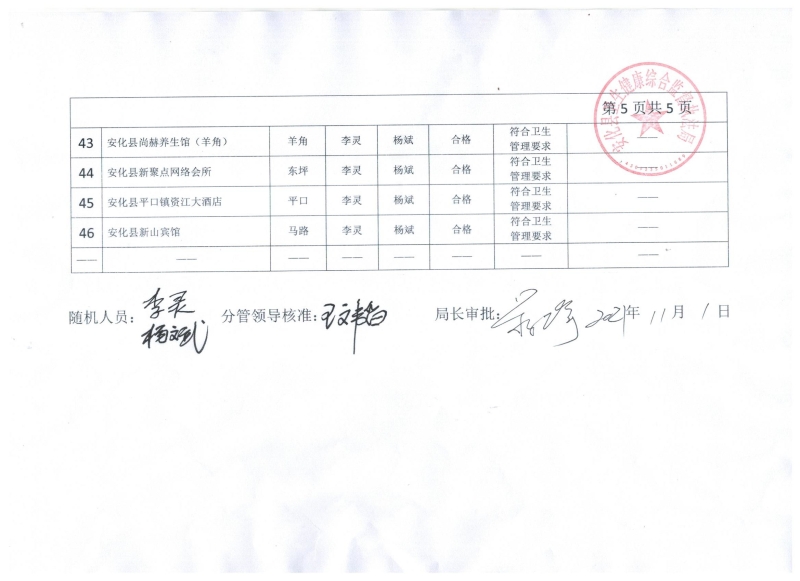 第 5 页共 5 页
安化县卫生健康综合监督执法局
43 安化县尚赫养生馆（羊角） 羊角 李灵 杨斌 合格 符合卫生管理要求 ——
44 安化县新聚点网络会所 东坪 李灵 杨斌 合格 符合卫生管理要求 ——
45 安化县平口镇资江大酒店 平口 李灵 杨斌 合格 符合卫生管理要求 ——
46 安化县新山宾馆 马路 李灵 杨斌 合格 符合卫生管理要求 ——
—— —— —— —— —— —— —— ——
随机人员：李灵 分管领导核准： 局长审批： 2021年 11月 1日
杨斌